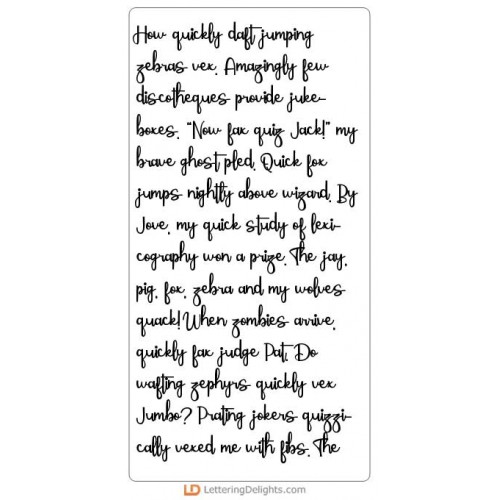 How quickly daft jumping
zebras vex. Amazingly few
discotheques provide juke-
boxes. "Now fax quiz Jack!" my
brave ghost pled. Quick fox
jumps nightly above wizard. By
Jove, my quick study of lexi-
cography won a prize. The jay,
pig, fox, zebra and my wolves
quack! When zombies arrive,
quickly fax judge Pat. Do
wafting zephyrs quickly vex
Jumbo? Prating jokers quizzi-
cally vexed me with fibs. The
LD LetteringDelights.com